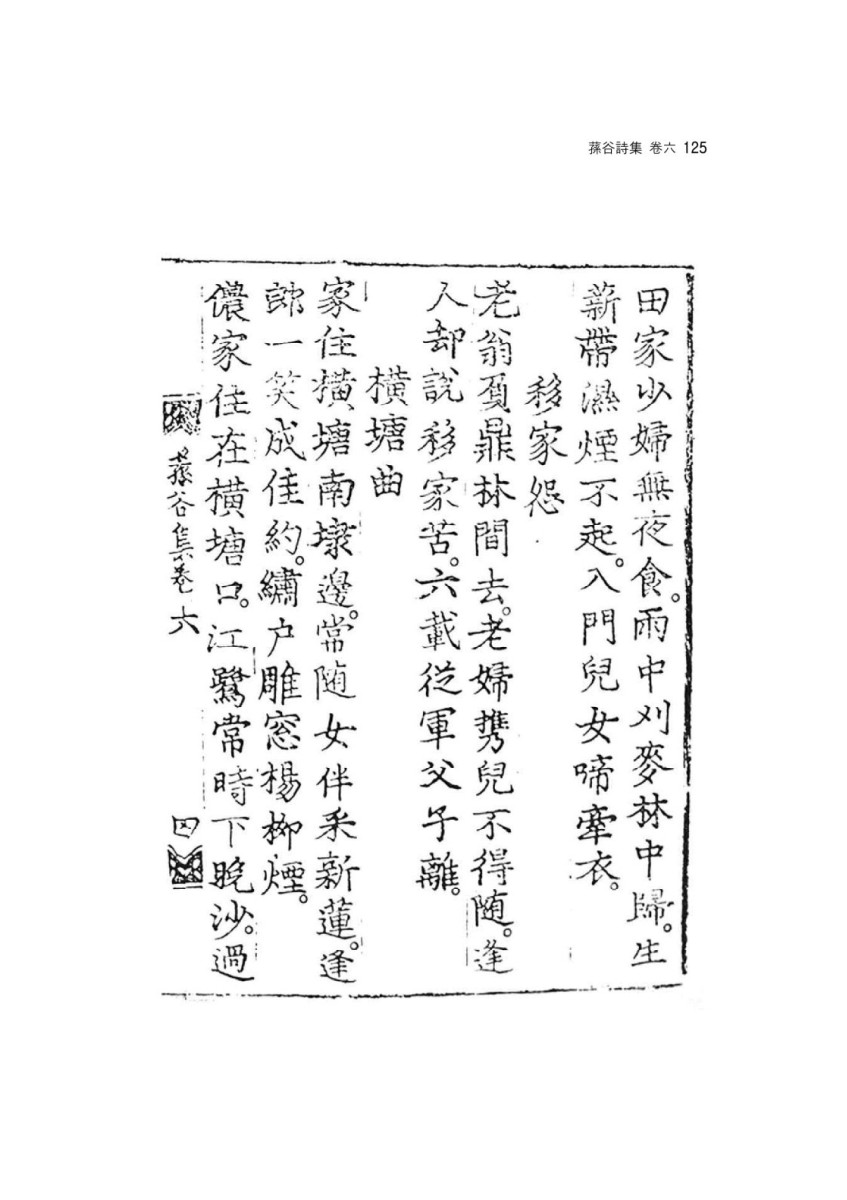 蓀谷詩集 卷六 125
田家少婦無夜食。雨中刈麥林中歸。生
薪帶濕煙不起。入門兒女啼牽衣。
移家怨
老翁負鼎林間去。老婦携兒不得随。逢
人却說移家苦。六載從軍父子離。
橫塘曲
家住橫塘南埭邊。常随女伴采新蓮。逢
郎一笑成佳約。繡户雕窓楊柳煙。
儂家住在橫塘口。江鷺常時下晩沙。過
蓀谷集卷六 四